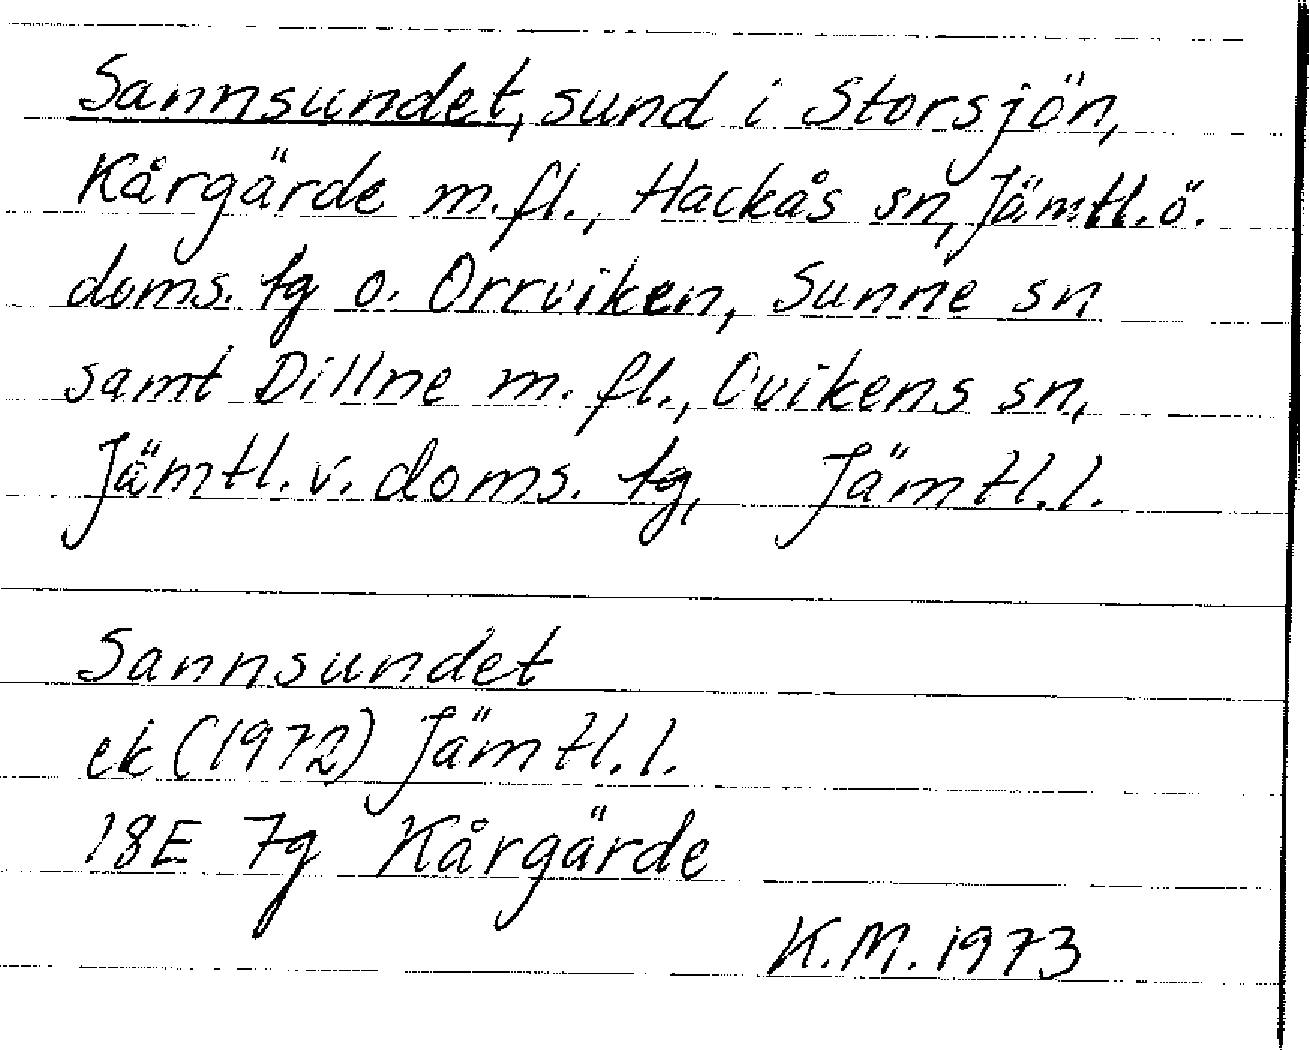 Sannsundet, sund i Storsjön,
Kårgärde m.fl., Hackås sn, Jämtl.ö.
doms. tg o. Orrviken, Sunne sn
samt Dillne m. fl., Ovikens sn,
Jämtl. v. doms. tg, Jämtl. l.
Sannsundet
ek (1972) Jämtl. l.
18E 7g Kårgärde
K.M. 1973